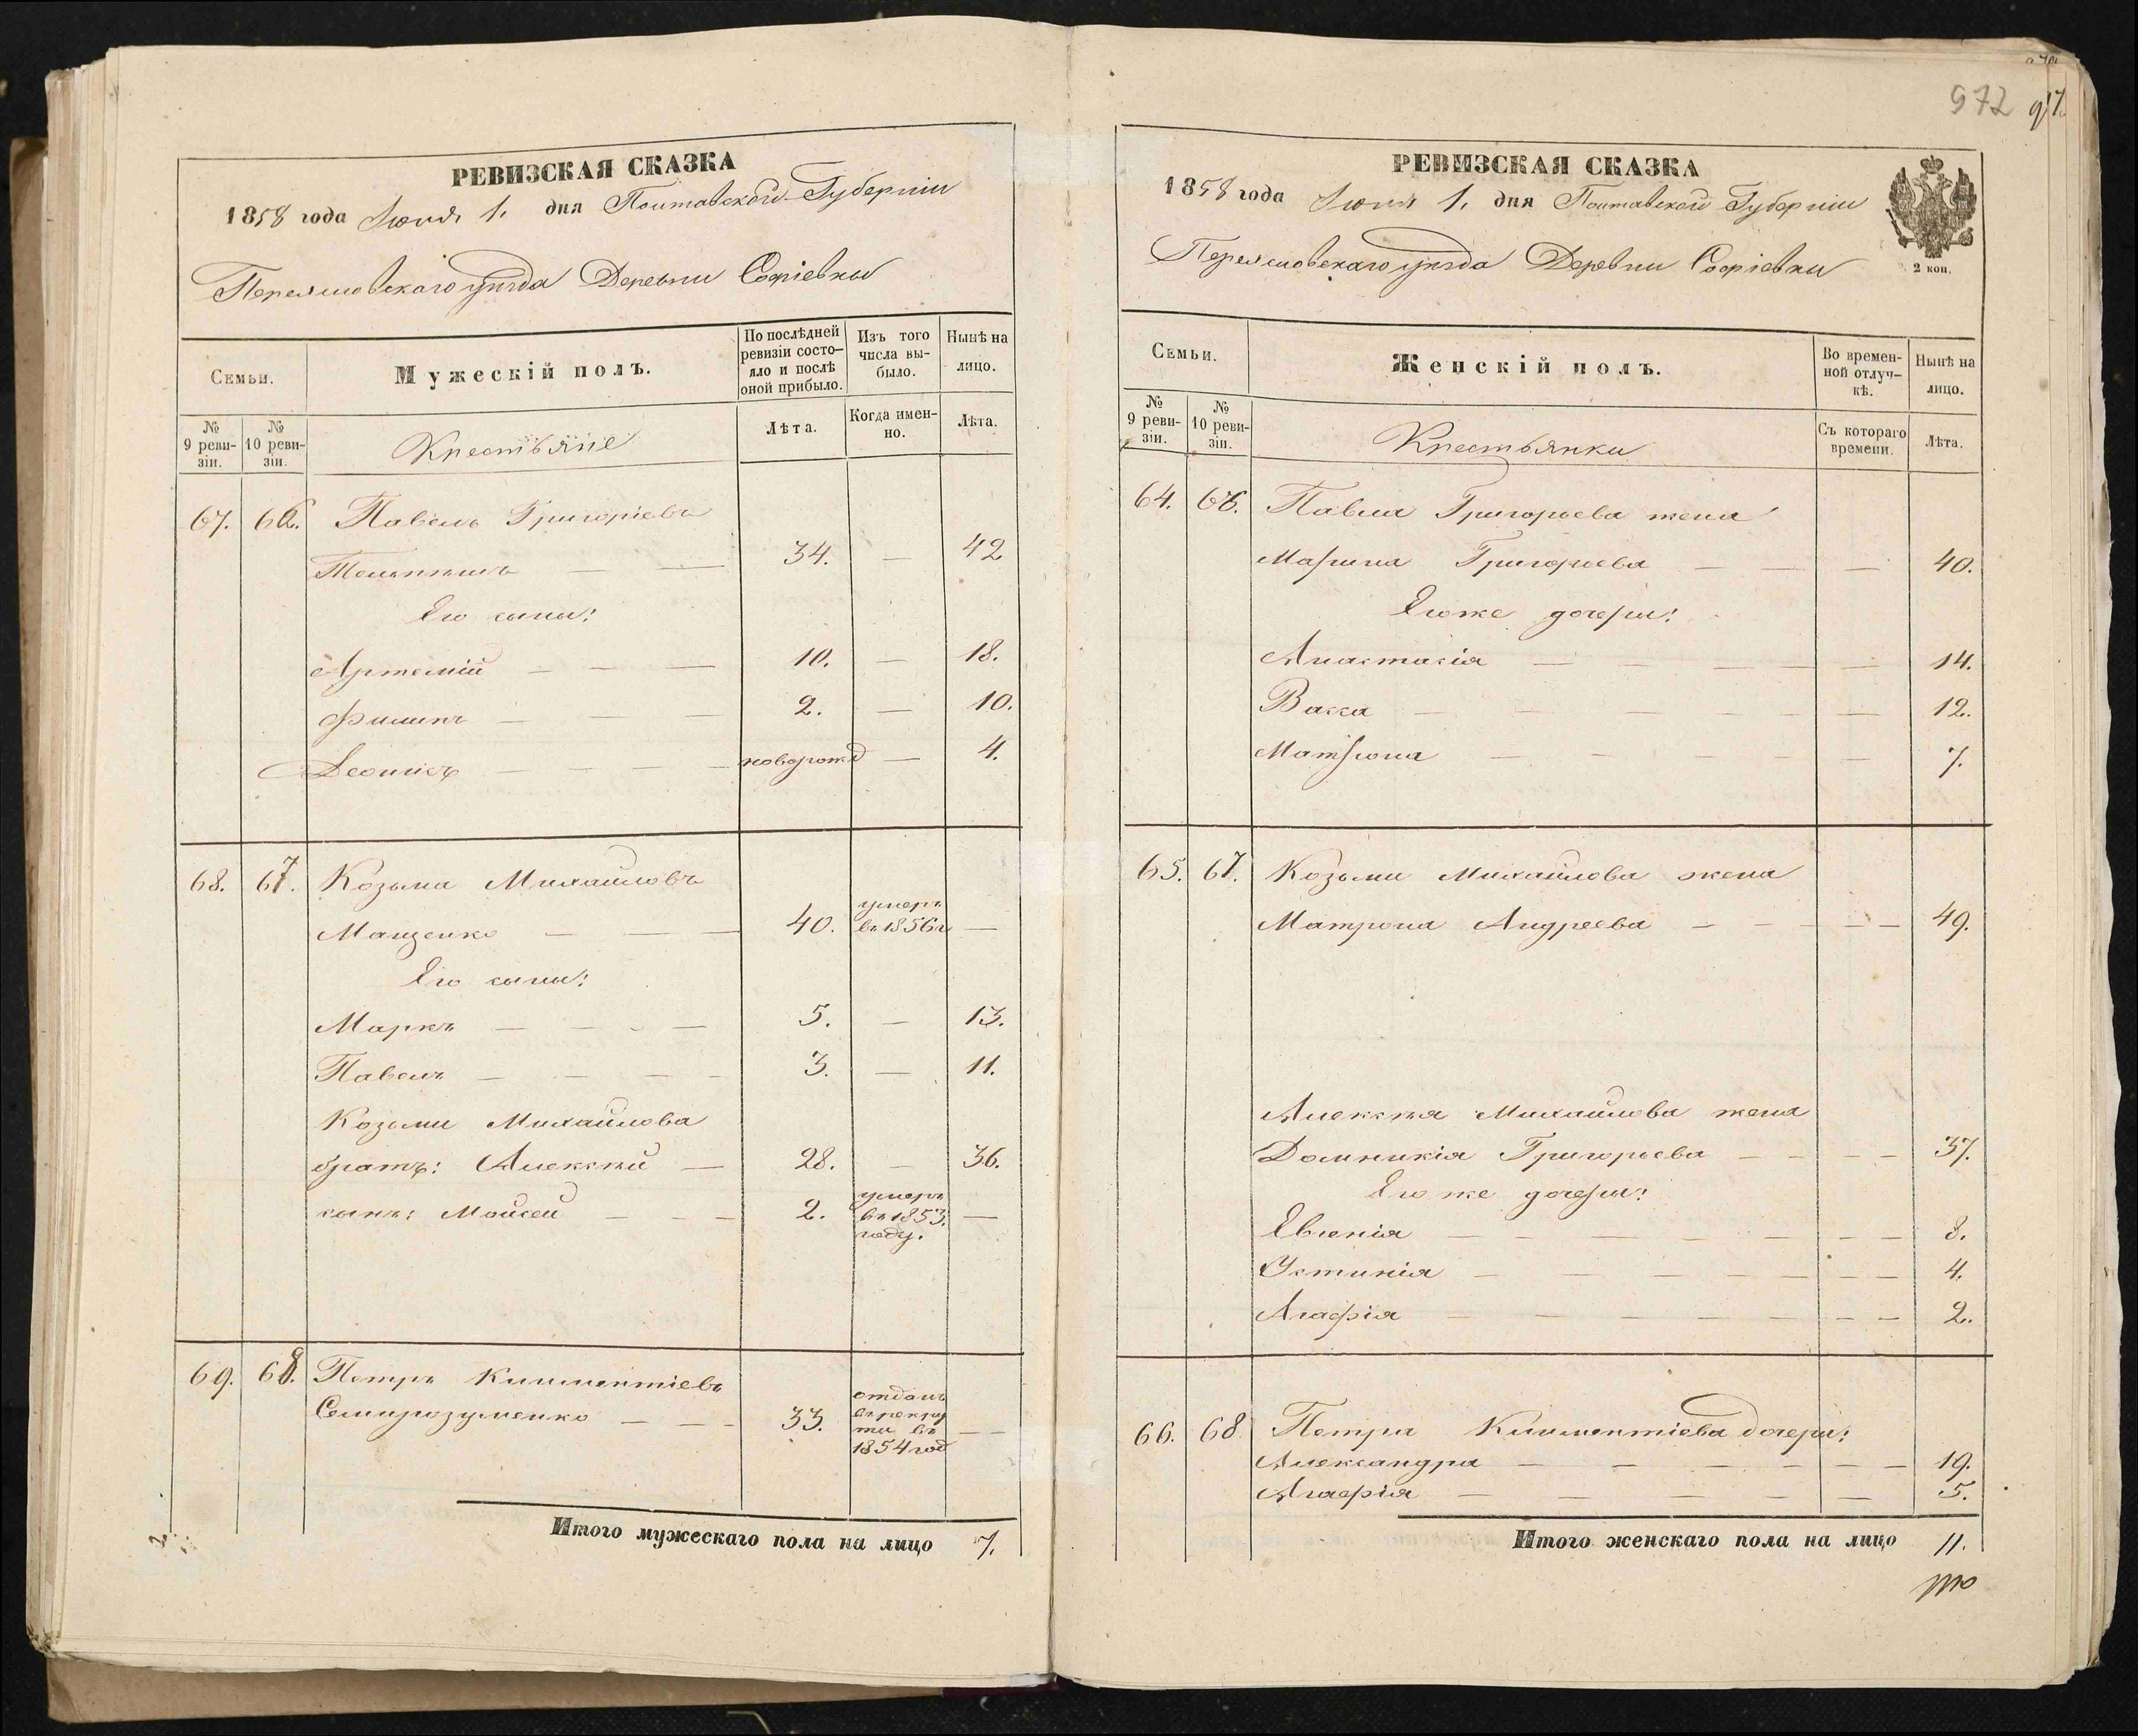 972
РЕВИЗСКАЯ СКАЗКА
1858 года Іюня 1. дня Полтавской Губерніи
Переяславскаго уѣзда Деревни Софіевки
Семьи.
Мужескій полъ.
По послѣдней ревизіи состо-
яло и послѣ оной прибыло.
Изъ того числа вы-
было.
Нынѣ на лицо.
№ 9 реви-
зіи.
№ 10 реви-
зіи.
Крестьяне
Лѣта.
Когда имен-
но.
Лѣта.
67. 66. Павелъ Григоріевъ
34. — 42
Его сыны:
Артемій — — — 10. — 18.
Филипъ — — — 2. — 10.
Леонтій — — — — новорожд — 4.
68. 67. Козьма Михайловъ
Мащенко — — — 40. умеръ въ 1856 г —
Его сыны:
Маркъ — — — — 5. — 13.
Павелъ — — — — 3. — 11.
Козьми Михайлова
братъ: Алексѣй — 28. — 36.
сынъ: Моисей — — — 2. умеръ въ 1853 году. —
69. 68. Петръ Климентіевъ
Семирозуменко — — — 33. отданъ въ рекру
ты въ 1854 год — —
Итого мужескаго пола на лицо 7.
РЕВИЗСКАЯ СКАЗКА
1858 года Іюня 1. дня Полтавской Губерніи
Переяславскаго уѣзда Деревни Софіевки
2 коп.
Семьи.
Женскій полъ.
Во времен-
ной отлуч-
кѣ.
Нынѣ на лицо.
№ 9 реви-
зіи.
№ 10 реви-
зіи.
Крестьянки
Съ котораго времени.
Лѣта.
64. 66. Павла Григорьева жена
Марина Григорьева — — — 40.
Его же дочери:
Анастасія — — — — — 14.
Васса — — — — — — 12.
Матрона — — — — — 7.
65. 67. Козьми Михайлова жена
Матрона Андреева — — — — — 49.
Алексѣя Михайлова жена
Домникія Григорьева — — — — 37.
Его же дочери:
Евгенія — — — — — — — 8.
Устинія — — — — — — — 4.
Агафія — — — — — — — 2.
66. 68 Петра Климентіева дочери:
Александра — — — — — — 19.
Агафія — — — — — 5.
Итого женскаго пола на лицо 11.